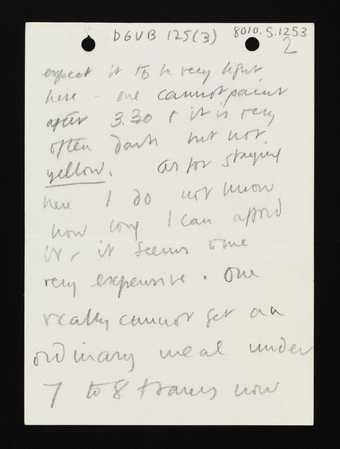 DGVB 125(3) 8010.5.1253
2
expect it to be very light
here - one cannot paint
after 3.30 & it is very
often dark but not
yellow. As for staying
here I do not know
how long I can afford
it & it seems to me
very expensive. One
really cannot get an
ordinary meal under
7 to 8 francs now